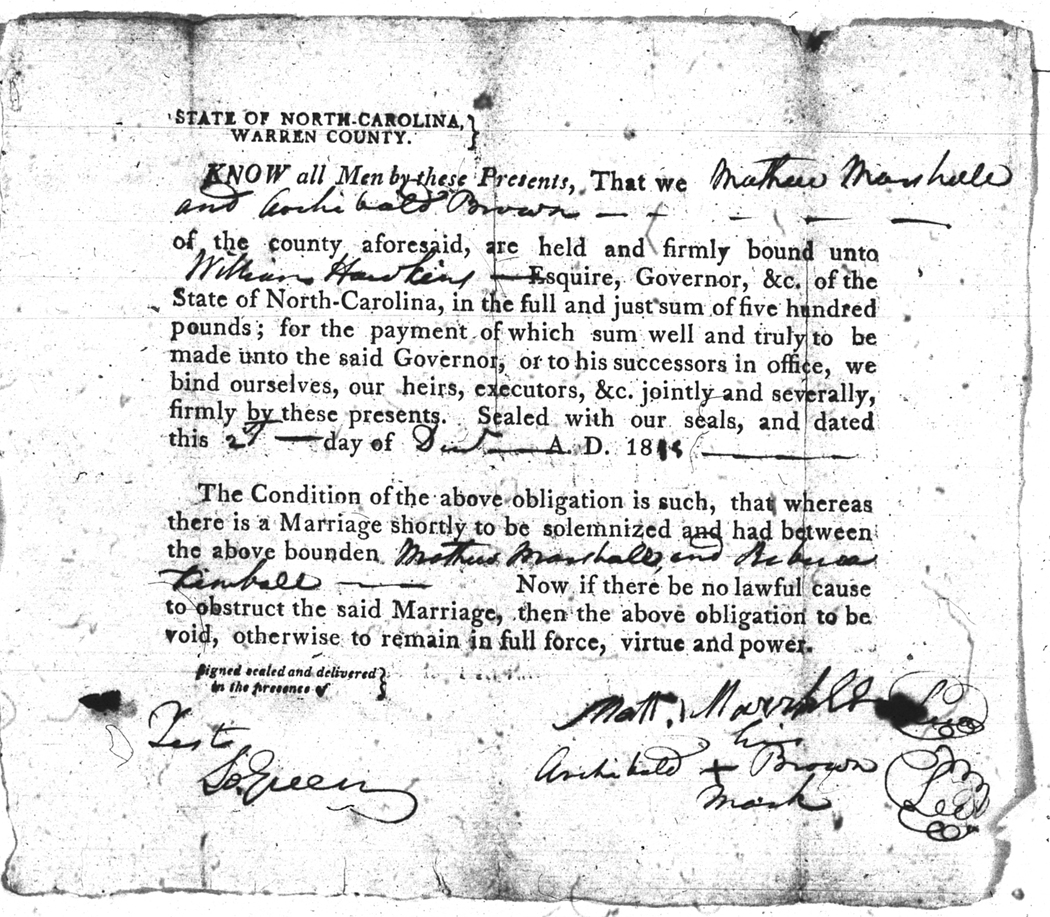 STATE OF NORTH-CAROLINA, }
WARREN COUNTY.
KNOW all Men by these Presents, That we Mathew Marshall
and Archibald Brown
of the county aforesaid, are held and firmly bound unto
William Hawkins — Esquire, Governor, &c. of the
State of North-Carolina, in the full and just sum of five hundred
pounds; for the payment of which sum well and truly to be
made unto the said Governor, or to his successors in office, we
bind ourselves, our heirs, executors, &c. jointly and severally,
firmly by these presents. Sealed with our seals, and dated
this — day of — A. D. 18
The Condition of the above obligation is such, that whereas
there is a Marriage shortly to be solemnized and had between
the above bounden Mathew Marshall, and Rebecca
Kimball — Now if there be no lawful cause
to obstruct the said Marriage, then the above obligation to be
void, otherwise to remain in full force, virtue and power.
Signed sealed and delivered }
in the presence of
Matt. Marshall
Test
his
Jo. Green
Archibald + Brown
mark